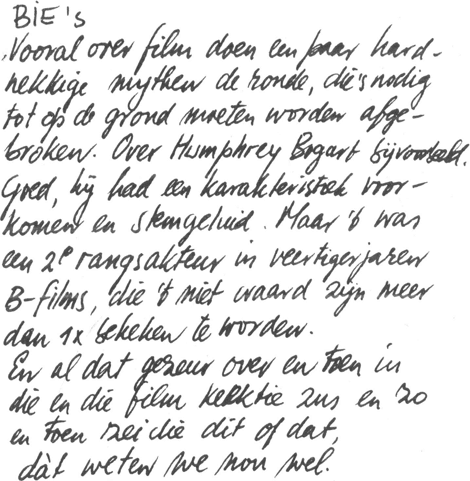 BIE's
Vooral over film doen een paar hard-
nekkige mythen de ronde, die's nodig
tot op de grond moeten worden afge-
broken. Over Humphrey Bogart bijvoorbeeld.
Goed, hij had een karakteristiek voor-
komen en stemgeluid. Maar 't was
een 2e rangsakteur in veertigerjaren
B-films, die 't niet waard zijn meer
dan 1x bekeken te worden.
En al dat gezeur over en toen in
die en die film keektie zus en zo
en toen zei die dit of dat,
dàt weten we nou wel.